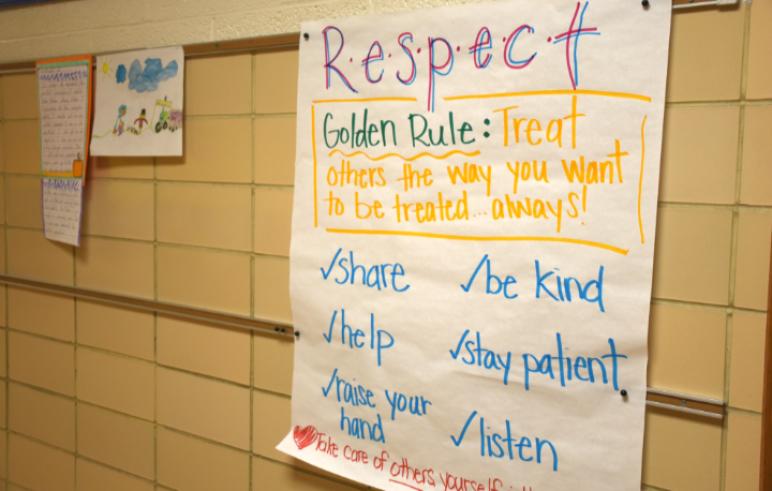 R.e.s.p.e.c.t
Golden Rule: Treat
others the way you want
to be treated...always!
✓share ✓be kind
✓help ✓stay patient
✓raise your
hand ✓listen
Take care of others yourself